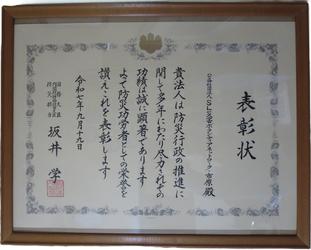 表彰状
市原殿
貴法人は防災行政の推進に
関して多年にわたり尽力されその
功績は誠に顕著であります
よって防災功労者としての栄誉を
讃えこれを表彰します
令和七年九月十九日
坂井 学